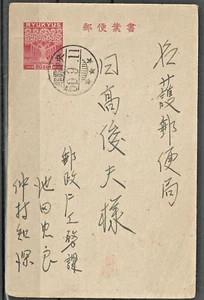 郵便葉書
RYUKYUS
名護郵便局
日高俊夫様
郵政庁工務課
池田忠良
仲村